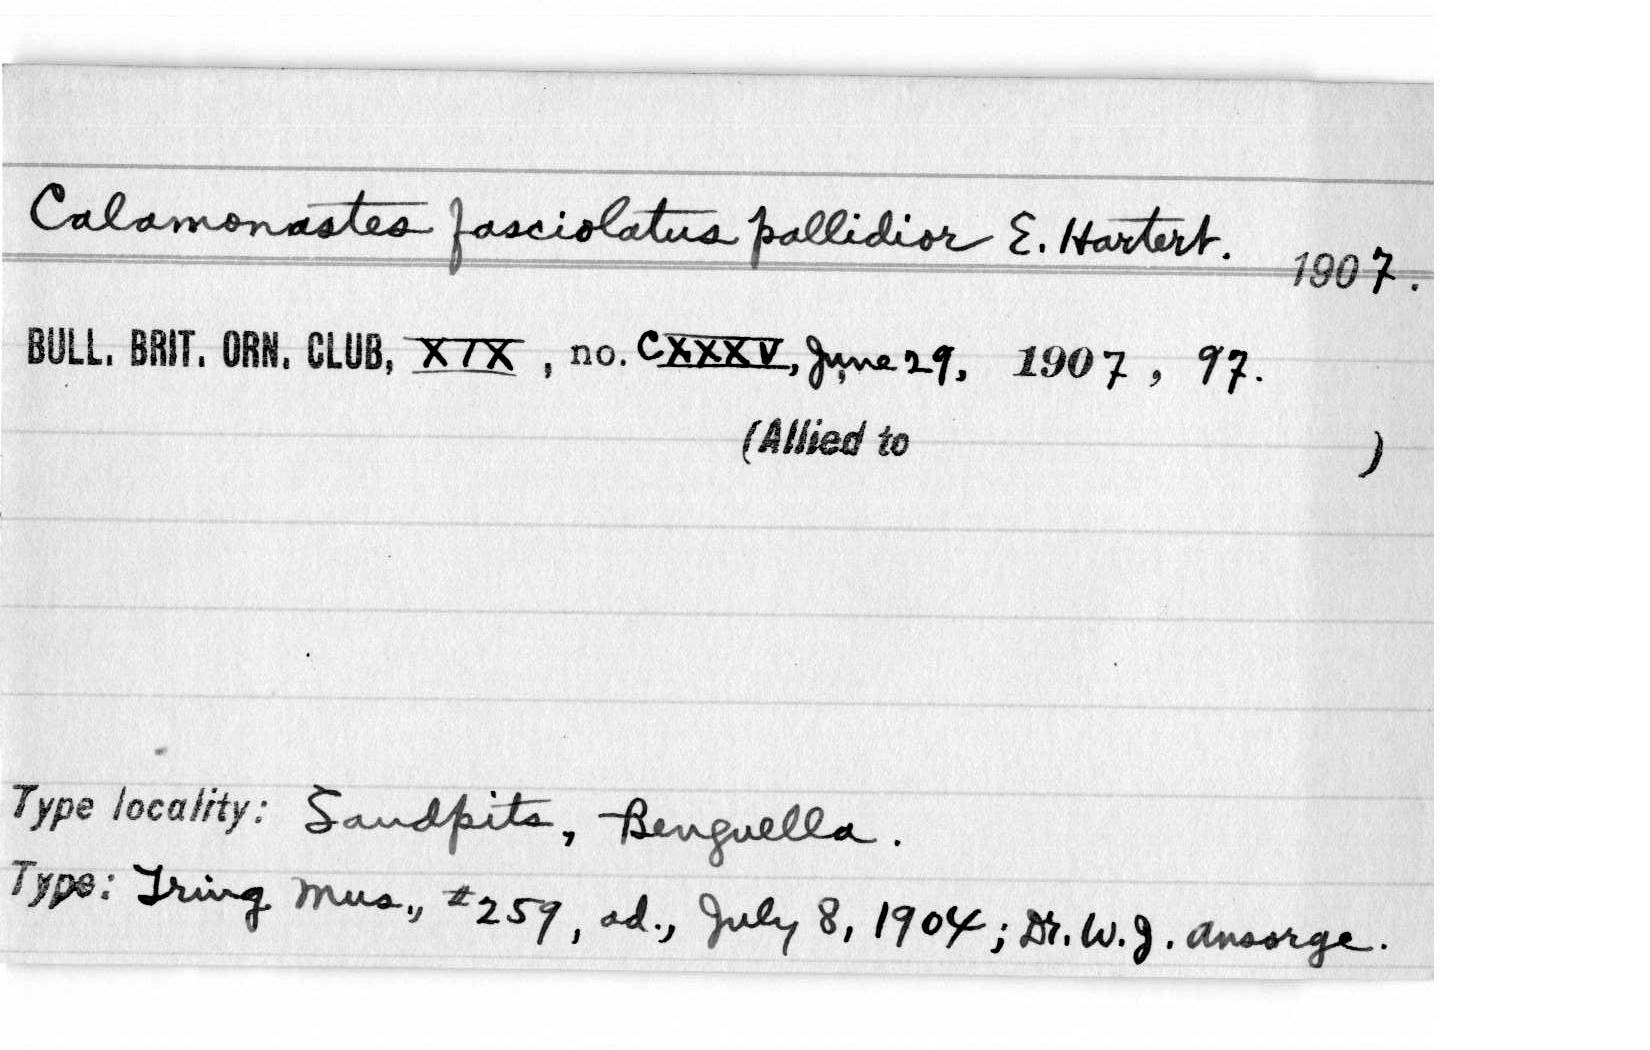 Calamonastes fasciolatus pallidior E. Hartert. 1907.
BULL. BRIT. ORN. CLUB, XIX, no. CXXXV, June 29, 1907, 97.
(Allied to )
Type locality: Sandpits, Benguella.
Type: Tring Mus., #259, ad., July 8, 1904; Dr. W. J. Ansorge.